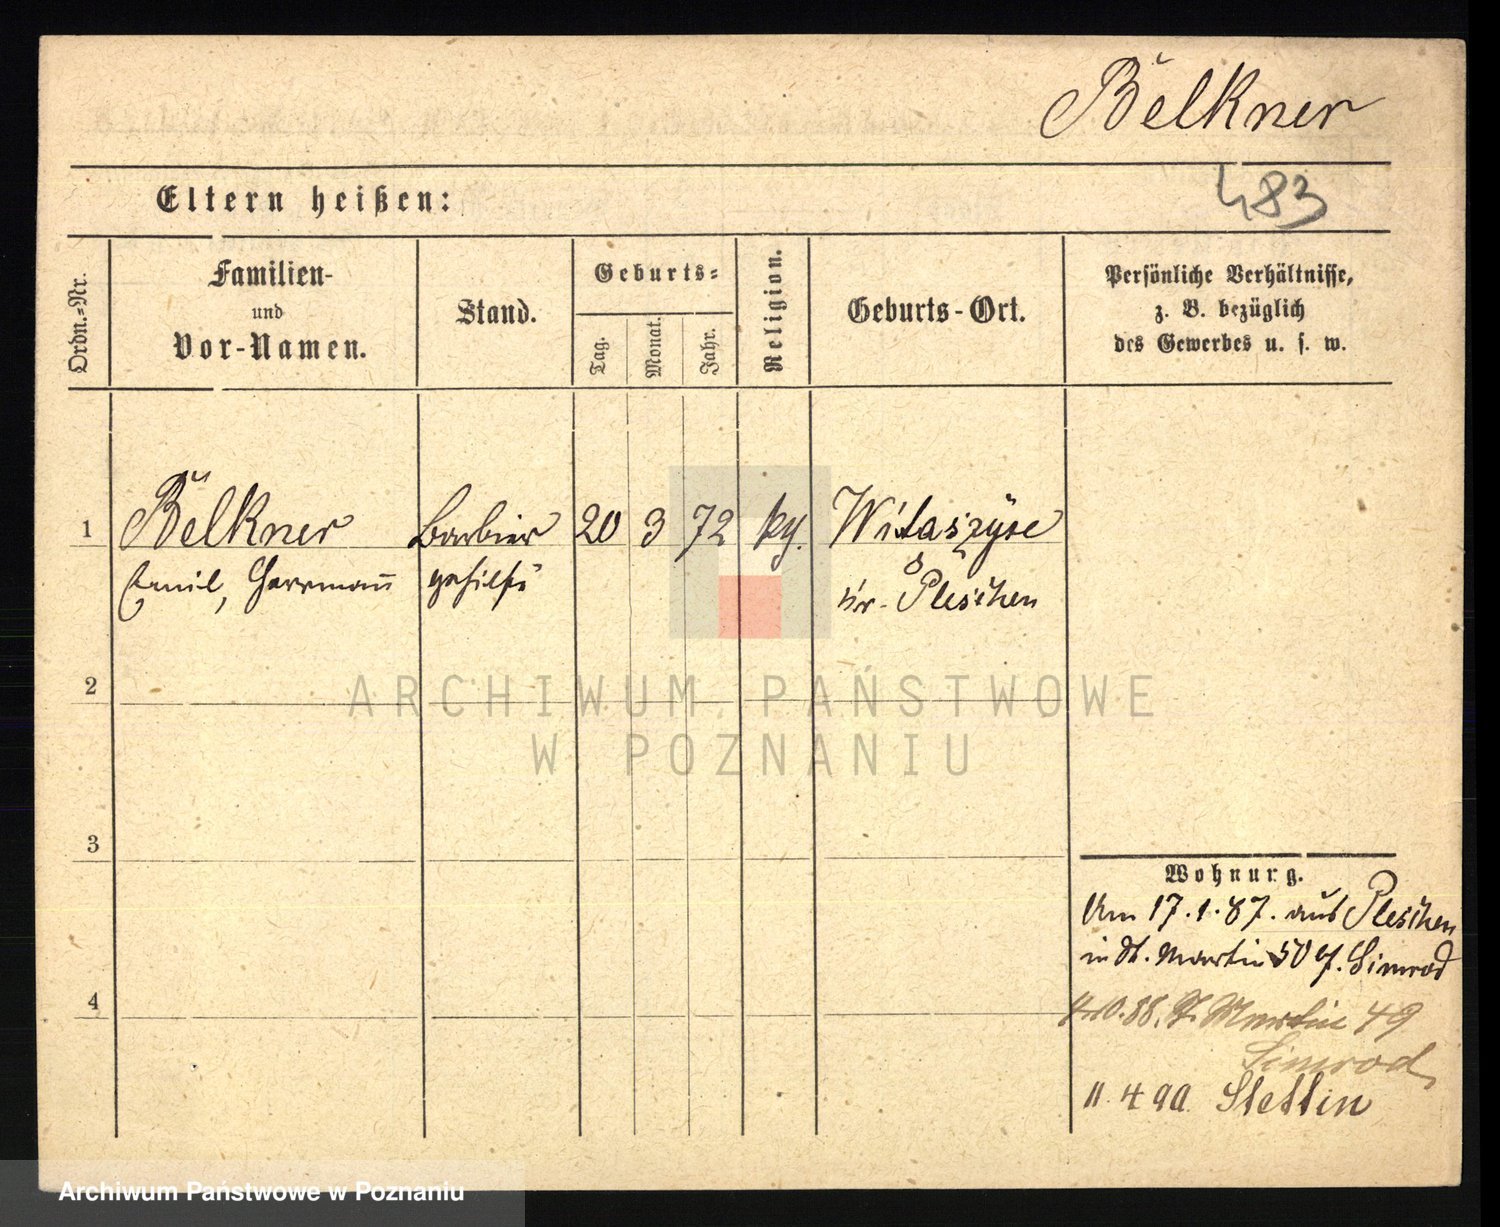 Bölkner
483
Eltern heißen:
Ordn.-Nr.
Familien-
und
Vor-Namen.
Stand.
Geburts-
Tag.
Monat.
Jahr.
Religion.
Geburts-Ort.
Persönliche Verhältnisse,
z. B. bezüglich
des Gewerbes u. s. w.
1
Bölkner
Barbier
20
3
72
Witaszyse
Emil, Herrmann
gehilfe
kr. Pleschen
2
ARCHIWUM PAŃSTWOWE
W POZNANIU
3
Wohnung.
Um 17.1.87. aus Pleschen
in St. Martin 50 Simrod
4
88. St. Martin 49
Simrod
11.4 90 Stettin
Archiwum Państwowe w Poznaniu